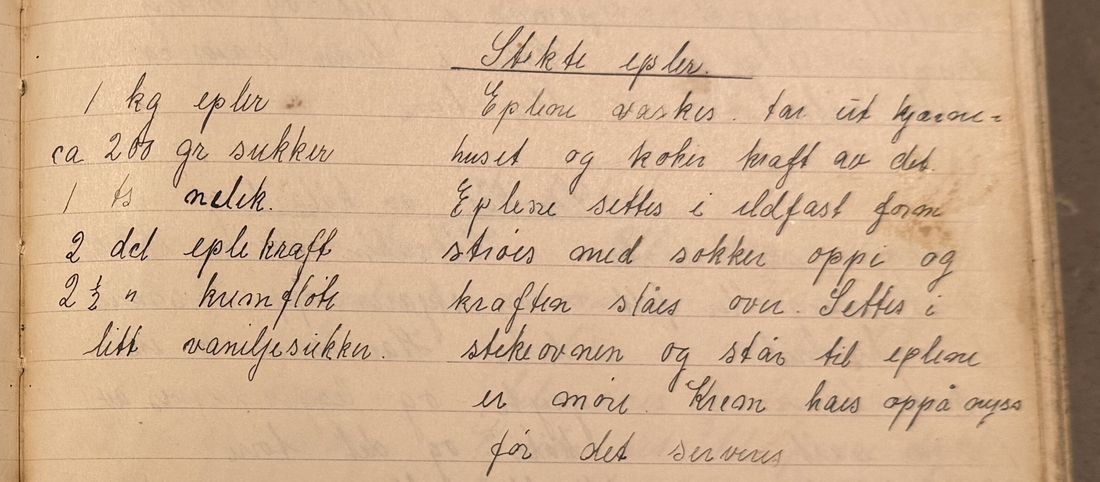 Stekte epler.
1 kg epler
ca 200 gr sukker
1 ts nelik.
2 del eplekraft
2 1/2 " kremfløte
litt vaniljesukker.
Eplene vaskes. tar ut kjærne=
huset og koker kraft av det.
Eplene settes i ildfast form
strøes med sokker oppi og
kraften slåes over. Settes i
stekeovnen og står til eplene
er møre. Krem haes oppå nyss
før det serveres